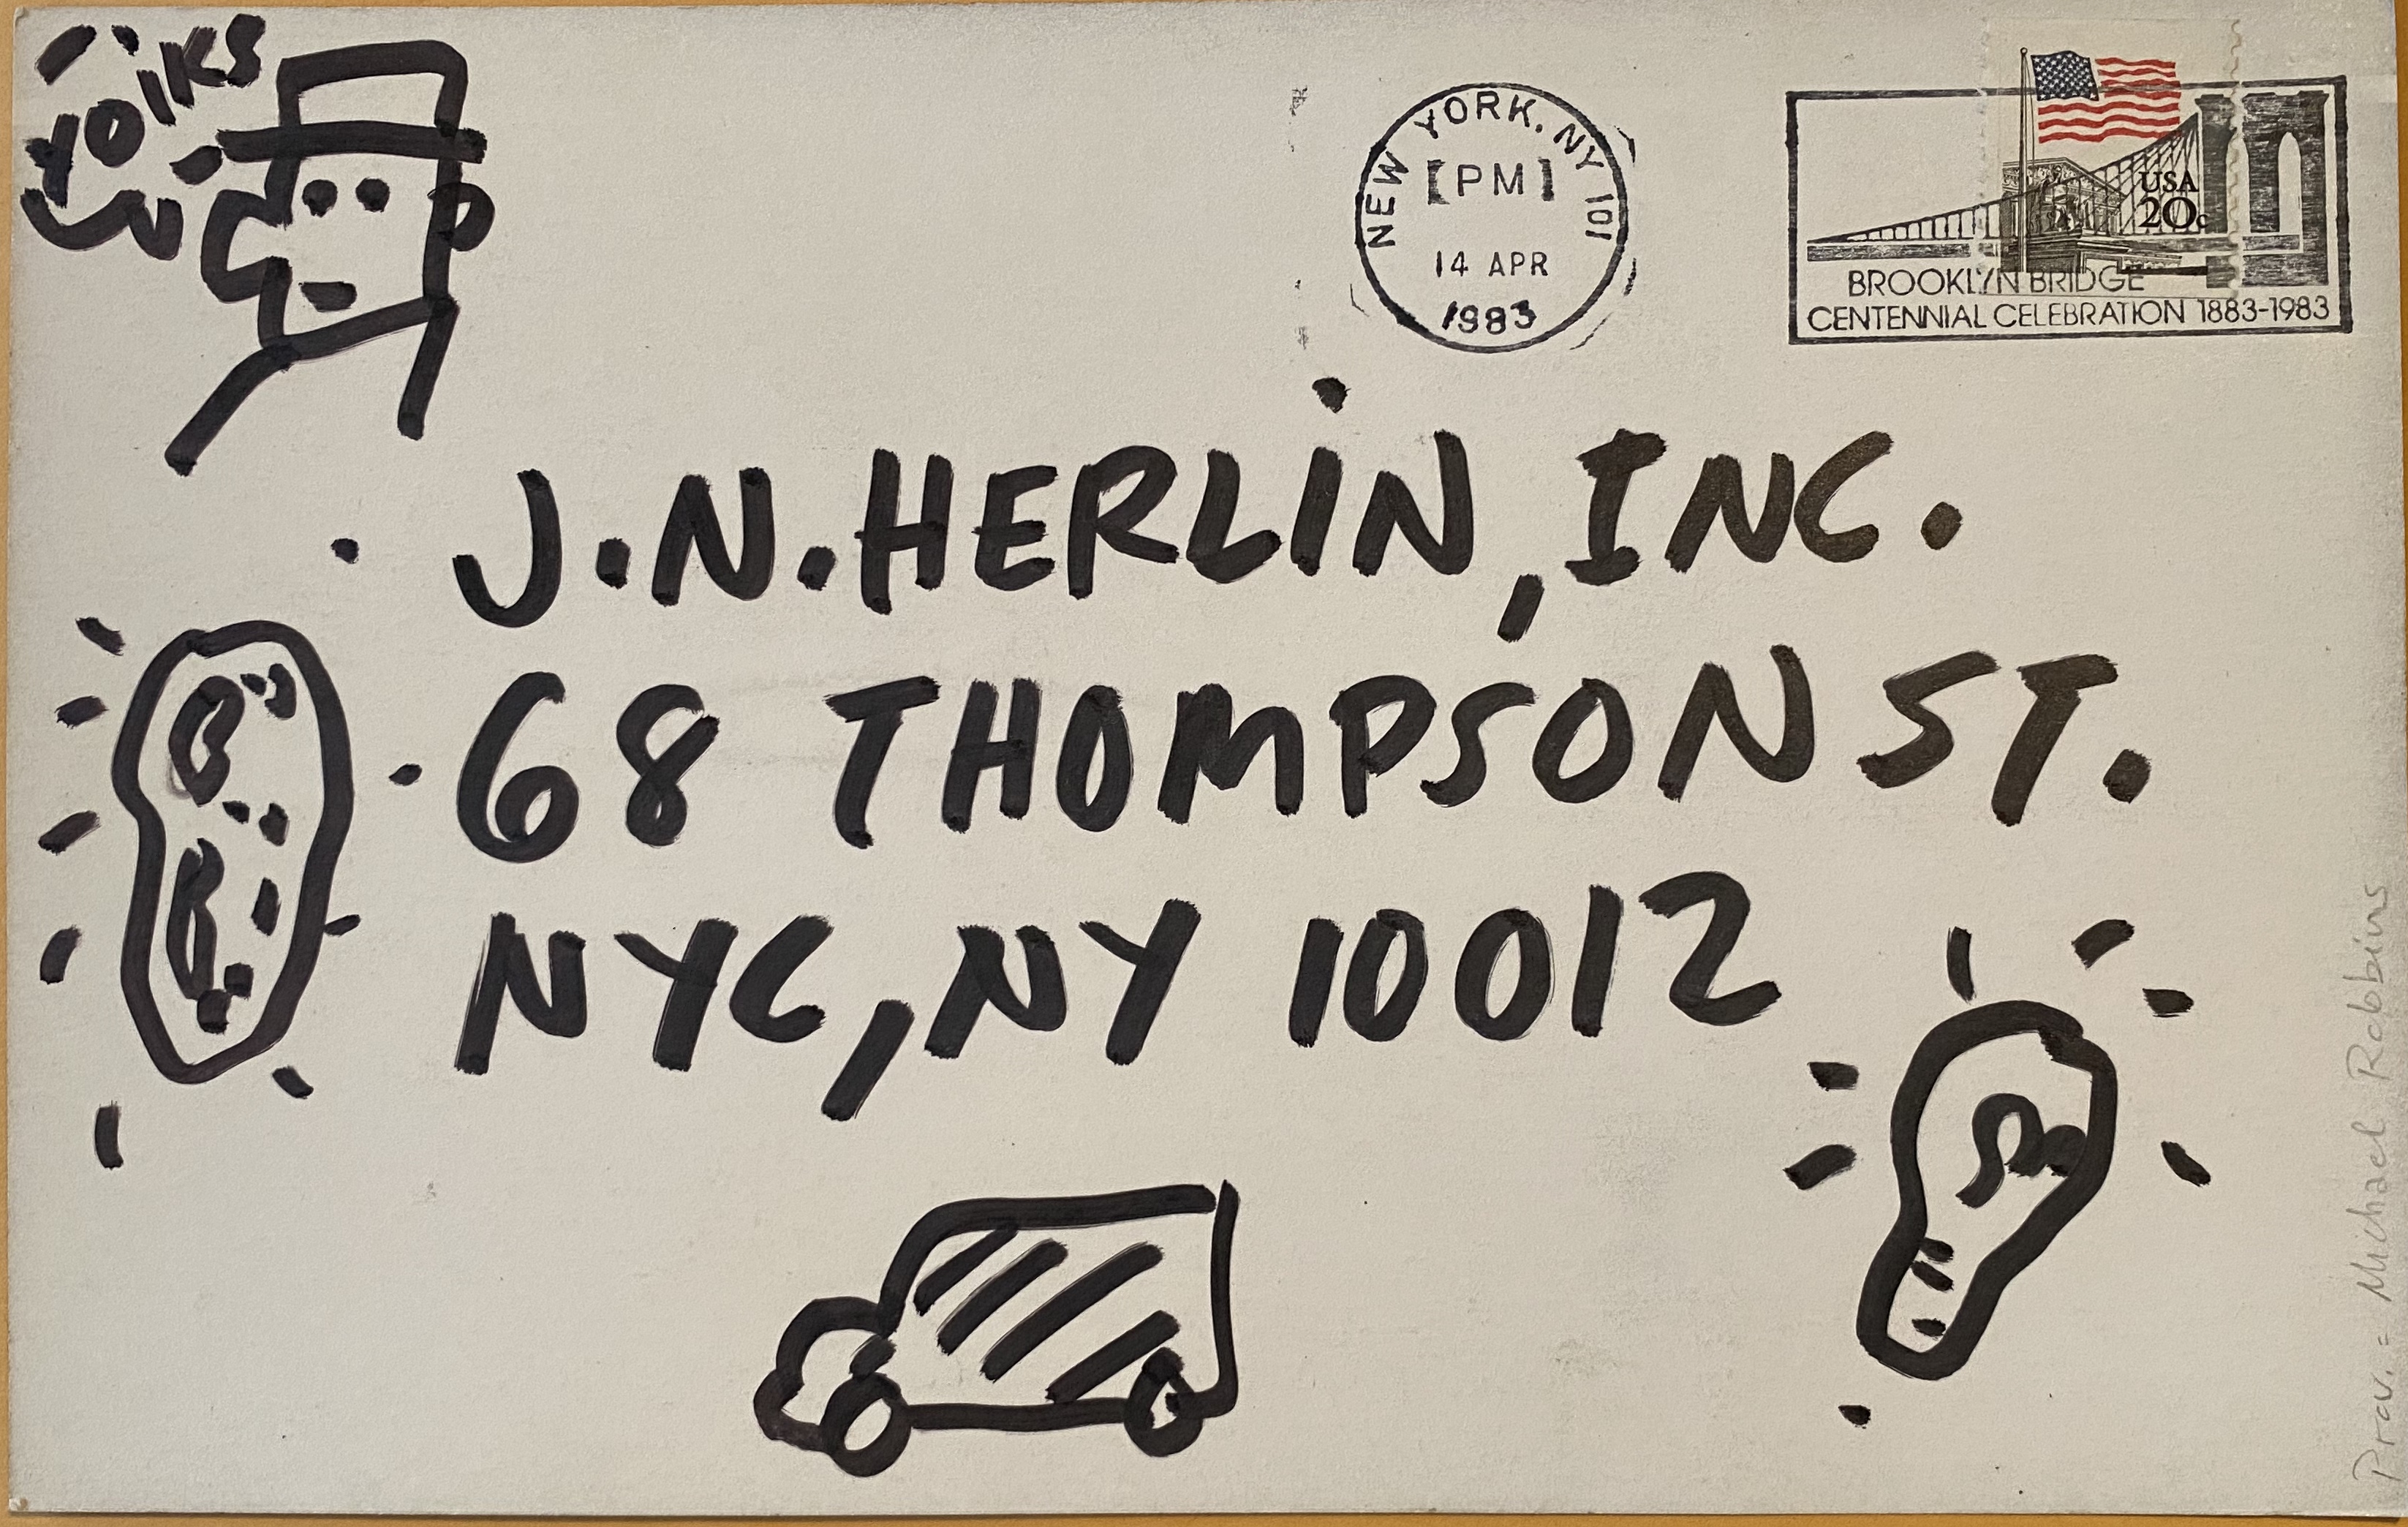 YOIKS
NEW YORK, NY 101
[PM]
14 APR
1983
USA
20c
BROOKLYN BRIDGE
CENTENNIAL CELEBRATION 1883-1983
J.N.HERLIN, INC.
68 THOMPSON ST.
NYC, NY 10012
Prov. = Michael Robbins